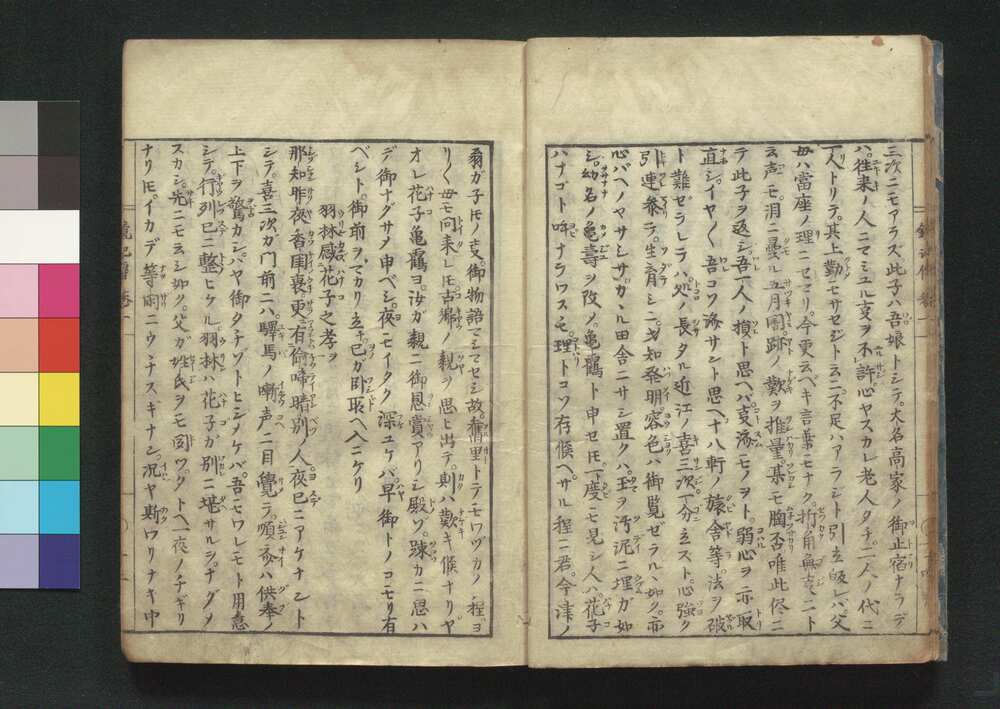 三次ニモアラズ此子ハ吾娘トシテ大名高家ノ御止宿ナラデ
ハ往来ノ人ニマミユル支ヲ不許心ヤスカレ老人タチ二人ノ代ニ
一人トリテ其上勤モサセジト云ニ不足ハアラジト引立皈レバ父
母ハ當座ノ理ニセマリ今更云ベキ言葉モナク折角無支ニト
云声モ泪ニ曇ル五月闇跡ノ歎ヲ推量某モ胸否唯此侭ニ
テ此子ヲ返シ吾一人ノ損ト思ヘバ支済モノヲト弱心ヲ亦取
直シイヤ〱吾コソ済サント思ヘ十八軒ノ旅舎等法ヲ破
ト難ゼラレテハ処ノ長タル近江ノ喜三次一分立ズト心強ク
引連参ラ生育シニ才知発明容色ハ御覧ゼラルヽ如ク亦
心バヘノヤサシサカヽル田舎ニサシ置クハ玉ヲ汚泥ニ埋ガ如
シ幼名ノ亀壽ヲ改メ亀鶴ト申セ𪜈一度モ見シ人ハ花子
ハナゴト呼ナラワスモ理トコソ存候ヘサル程ニ君今津ノ
翁ガ子𪜈ノ支御物語マシマセシ故舊里トテモワヅカノ程ヨ
リ〱毋モ問来レ𪜈古郷ノ親ヲ思ヒ出テ則ハ歎キ候ナリヤ
オレ花子亀鶴ヨ汝ガ親ニ御恩賞アリシ殿ゾ疎カニ思ハ
デ御ナグサメ申ベシ夜モイタク深ユケバ早御トノコモリ有
ベシト御前ヲマカリ立己ガ臥所ヘ入ニケリ
羽林感花子之孝ヲ
那知昨夜香閨裏更有偷啼暗別人夜已ニアケナント
シテ喜三次ガ門前ニハ驛馬ノ嘶声ニ目覺テ順斎ハ供奉ノ
上下ヲ驚カシハヤ御タチゾトヒシメケバ吾モワレモト用意
シテ行列已ニ整ヒケル羽林ハ花子ガ別ニ堪サルヲナグメ
スカシ先ニモ云シ如ク父ガ姓氏ヲモ回ヅクトヘ一夜ノチギリ
ナリ𪜈イカデ等閑ニウチスギナン況ヤ斯ワリナキ中